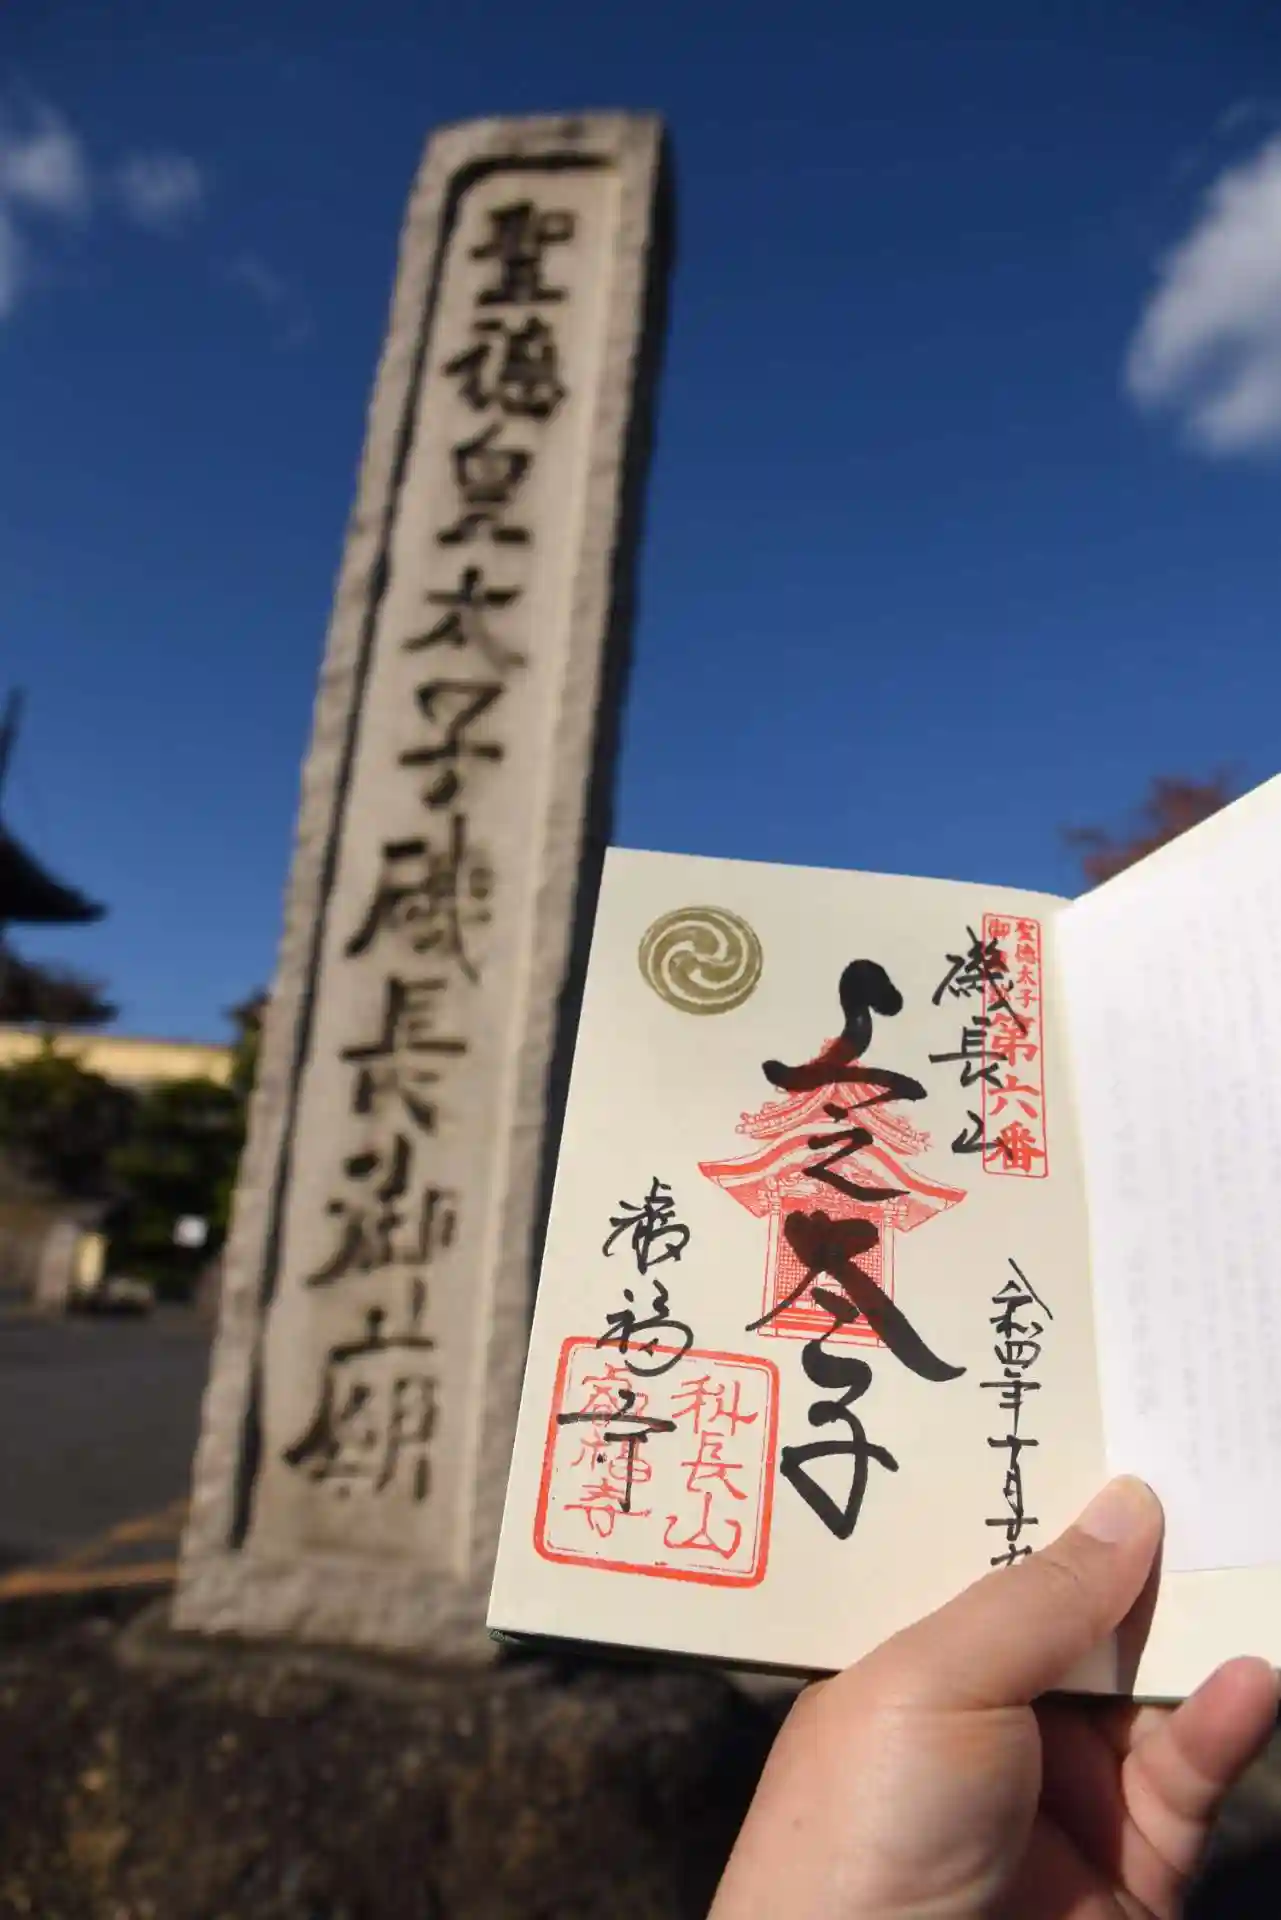 聖徳皇太子磯長御廟
聖徳太子
御
第六番
磯長山
上之太子
叡福寺
科長山
叡福寺
令和四年十月廿九